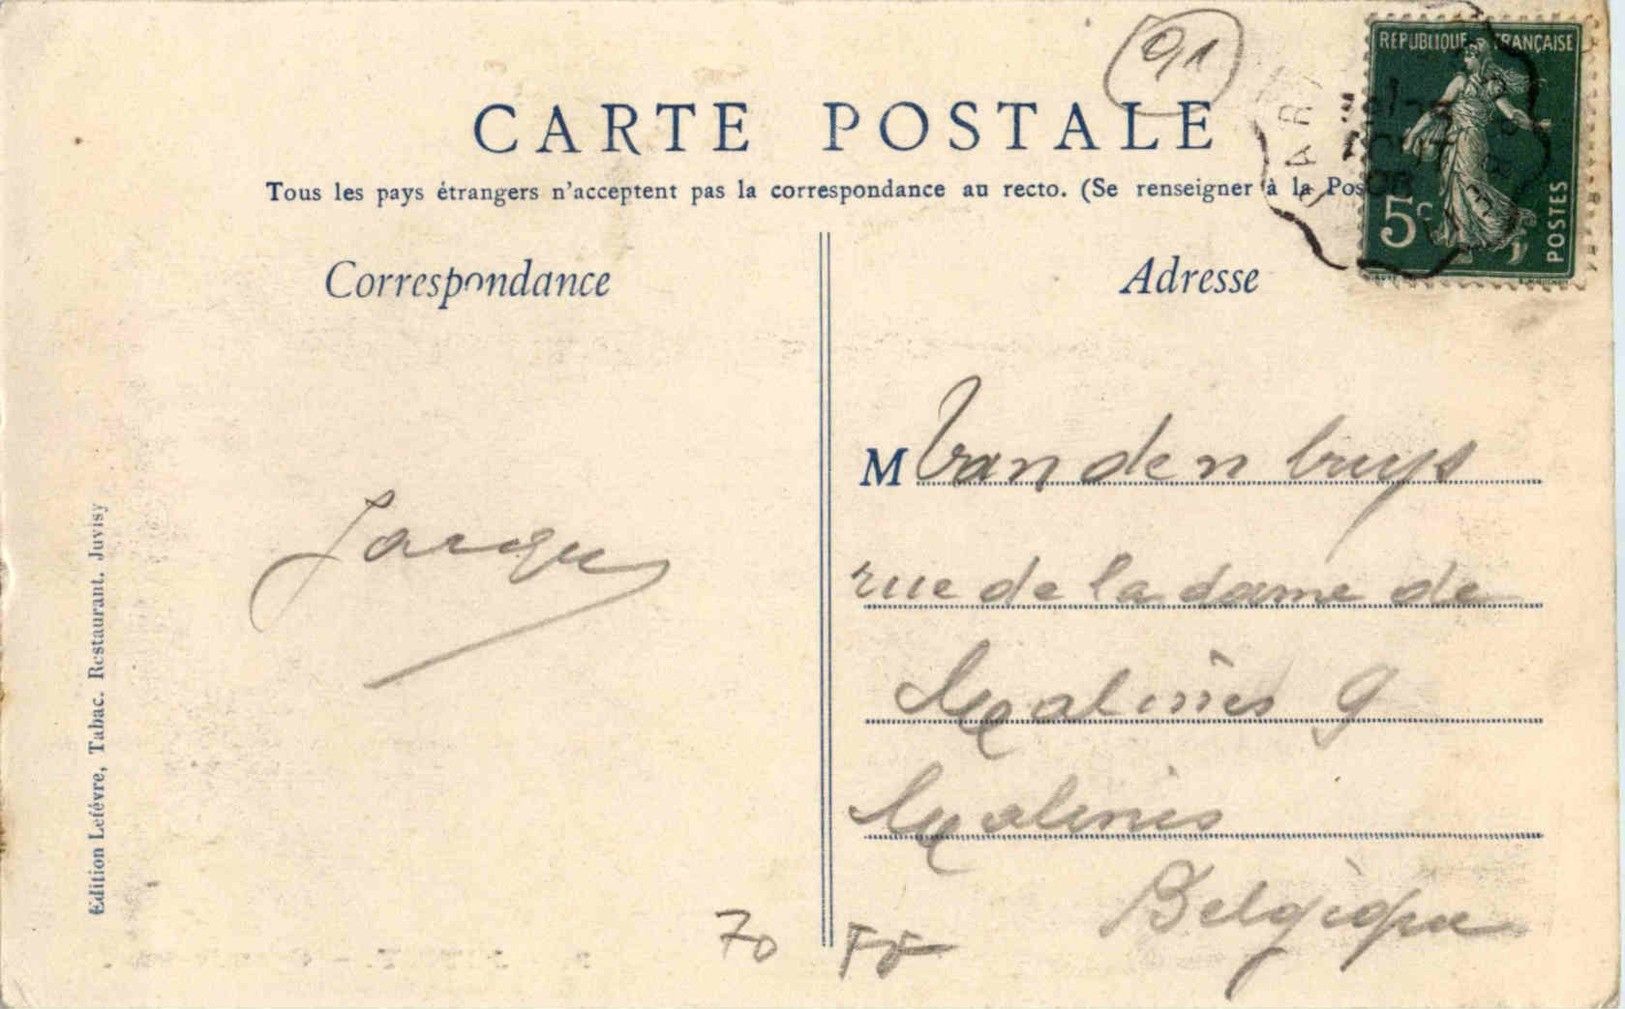 91
CARTE POSTALE
Tous les pays étrangers n'acceptent pas la correspondance au recto. (Se renseigner à la Pos
RÉPUBLIQUE FRANÇAISE
5c
POSTES
Correspondance
Adresse
Jacques
M Vanden bruys
rue de la dame de
Malines 9
Malines
Belgique
70 FF
Edition Lefévre, Tabac. Restaurant. Juvisy